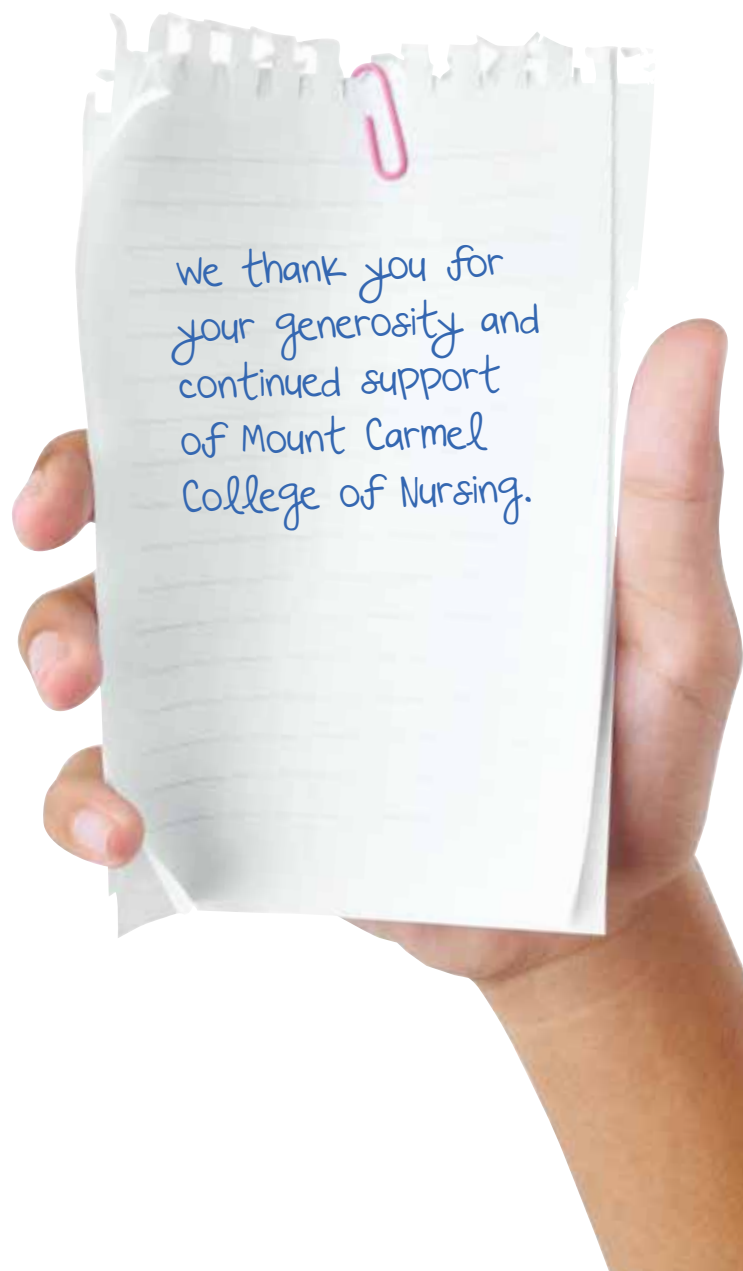 We thank you for
your generosity and
continued support
of Mount Carmel
College of Nursing.